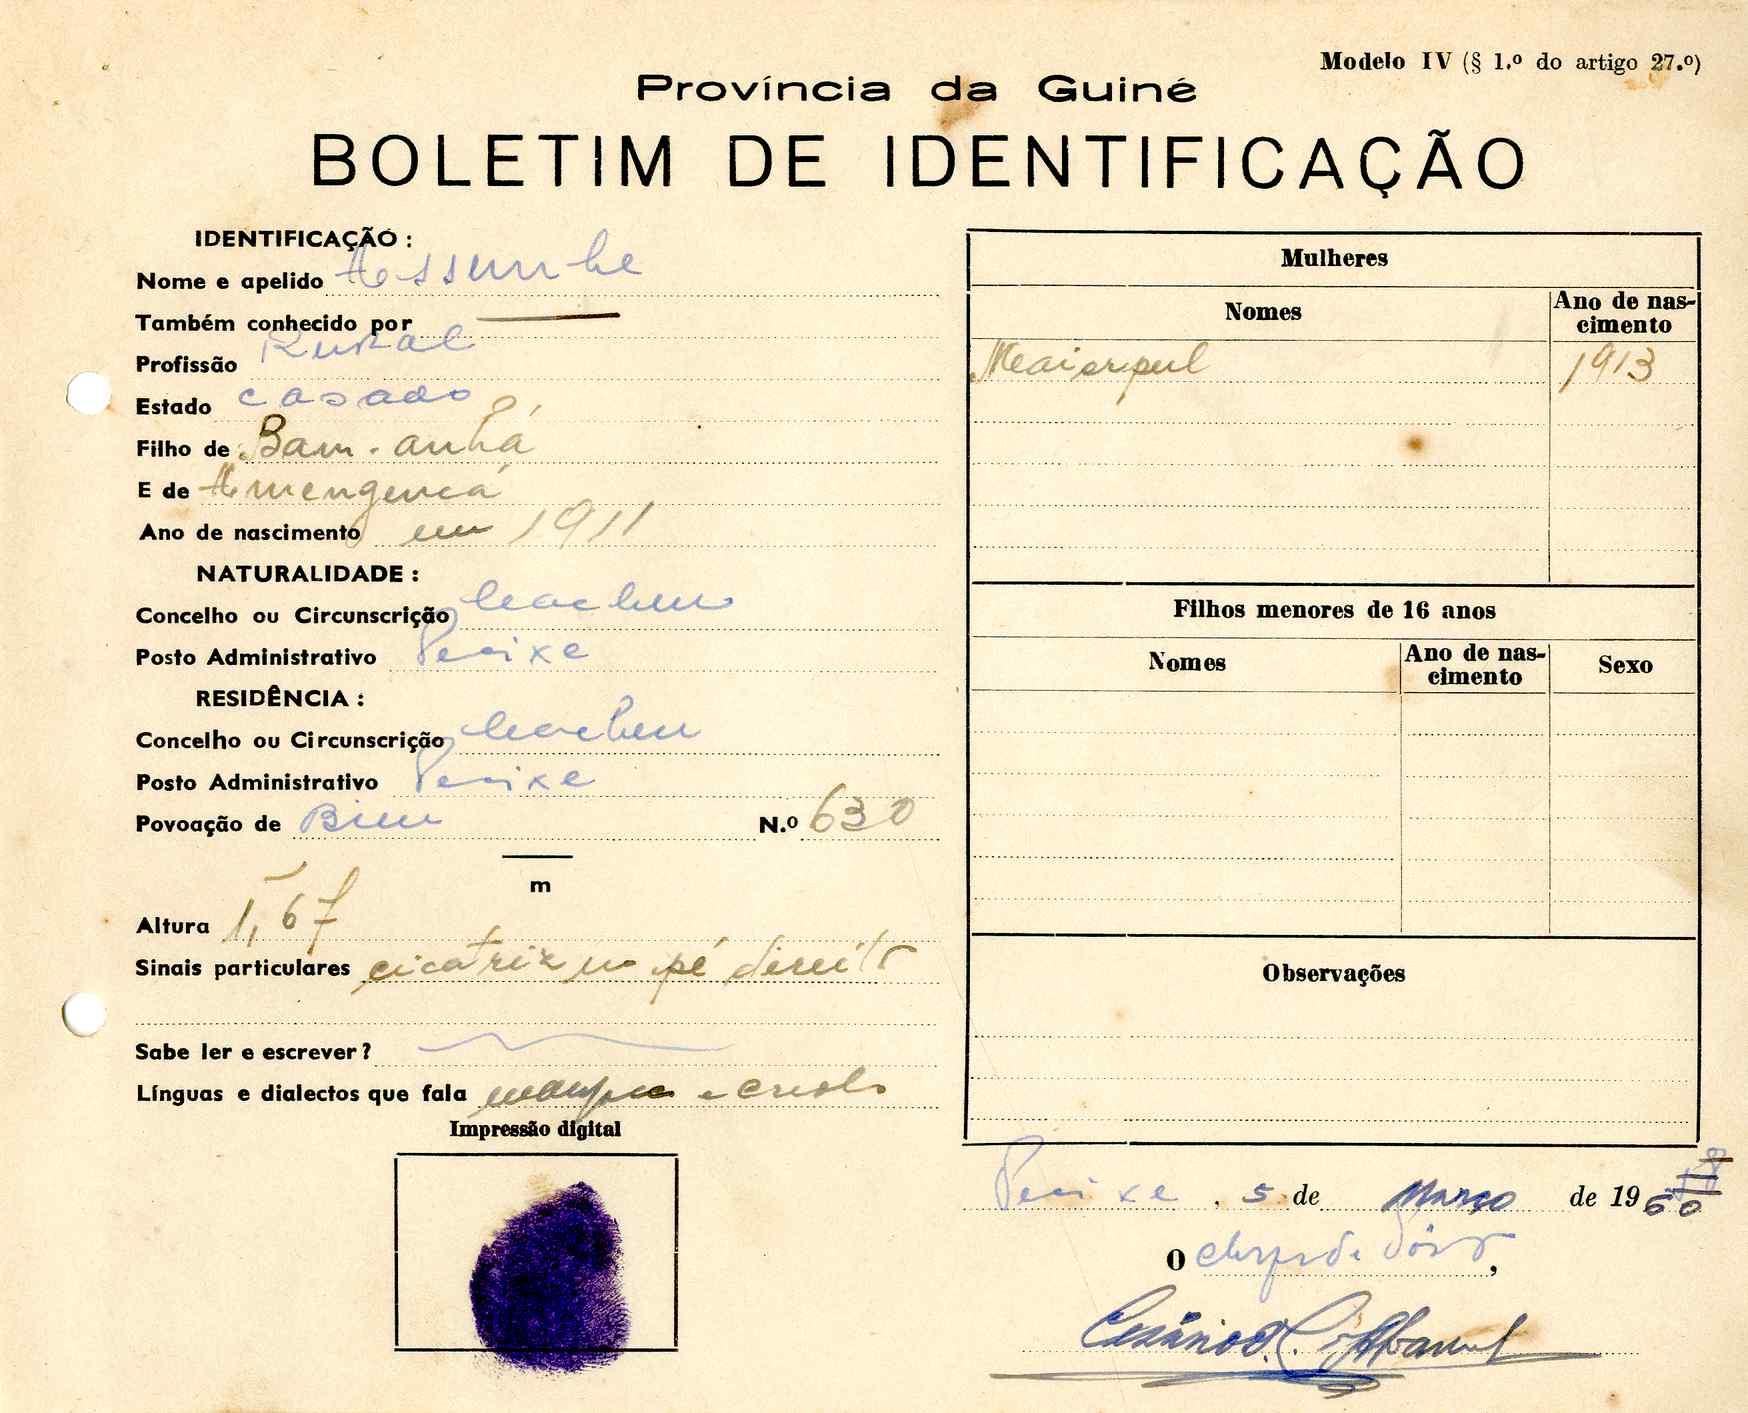 Modelo IV (§ 1.º do artigo 27.º)
Província da Guiné
BOLETIM DE IDENTIFICAÇÃO
IDENTIFICAÇÃO :
Nome e apelido Assunhe
Também conhecido por
Profissão Rural
Estado casado
Filho de Bam-anhá
E de Amengencá
Ano de nascimento em 1911
NATURALIDADE :
Concelho ou Circunscrição Cacheu
Posto Administrativo Pecixe
RESIDÊNCIA :
Concelho ou Circunscrição Cacheu
Posto Administrativo Pecixe
Povoação de N.º 630
m
Altura 1,67
Sinais particulares cicatriz no pé direito
Sabe ler e escrever?
Línguas e dialectos que fala e creolo
Impressão digital
Mulheres
Nomes
Ano de nas-
cimento
1913
Filhos menores de 16 anos
Nomes
Ano de nas-
cimento
Sexo
Observações
Pecixe, 5 de Março de 1960
O chefe de Posto,